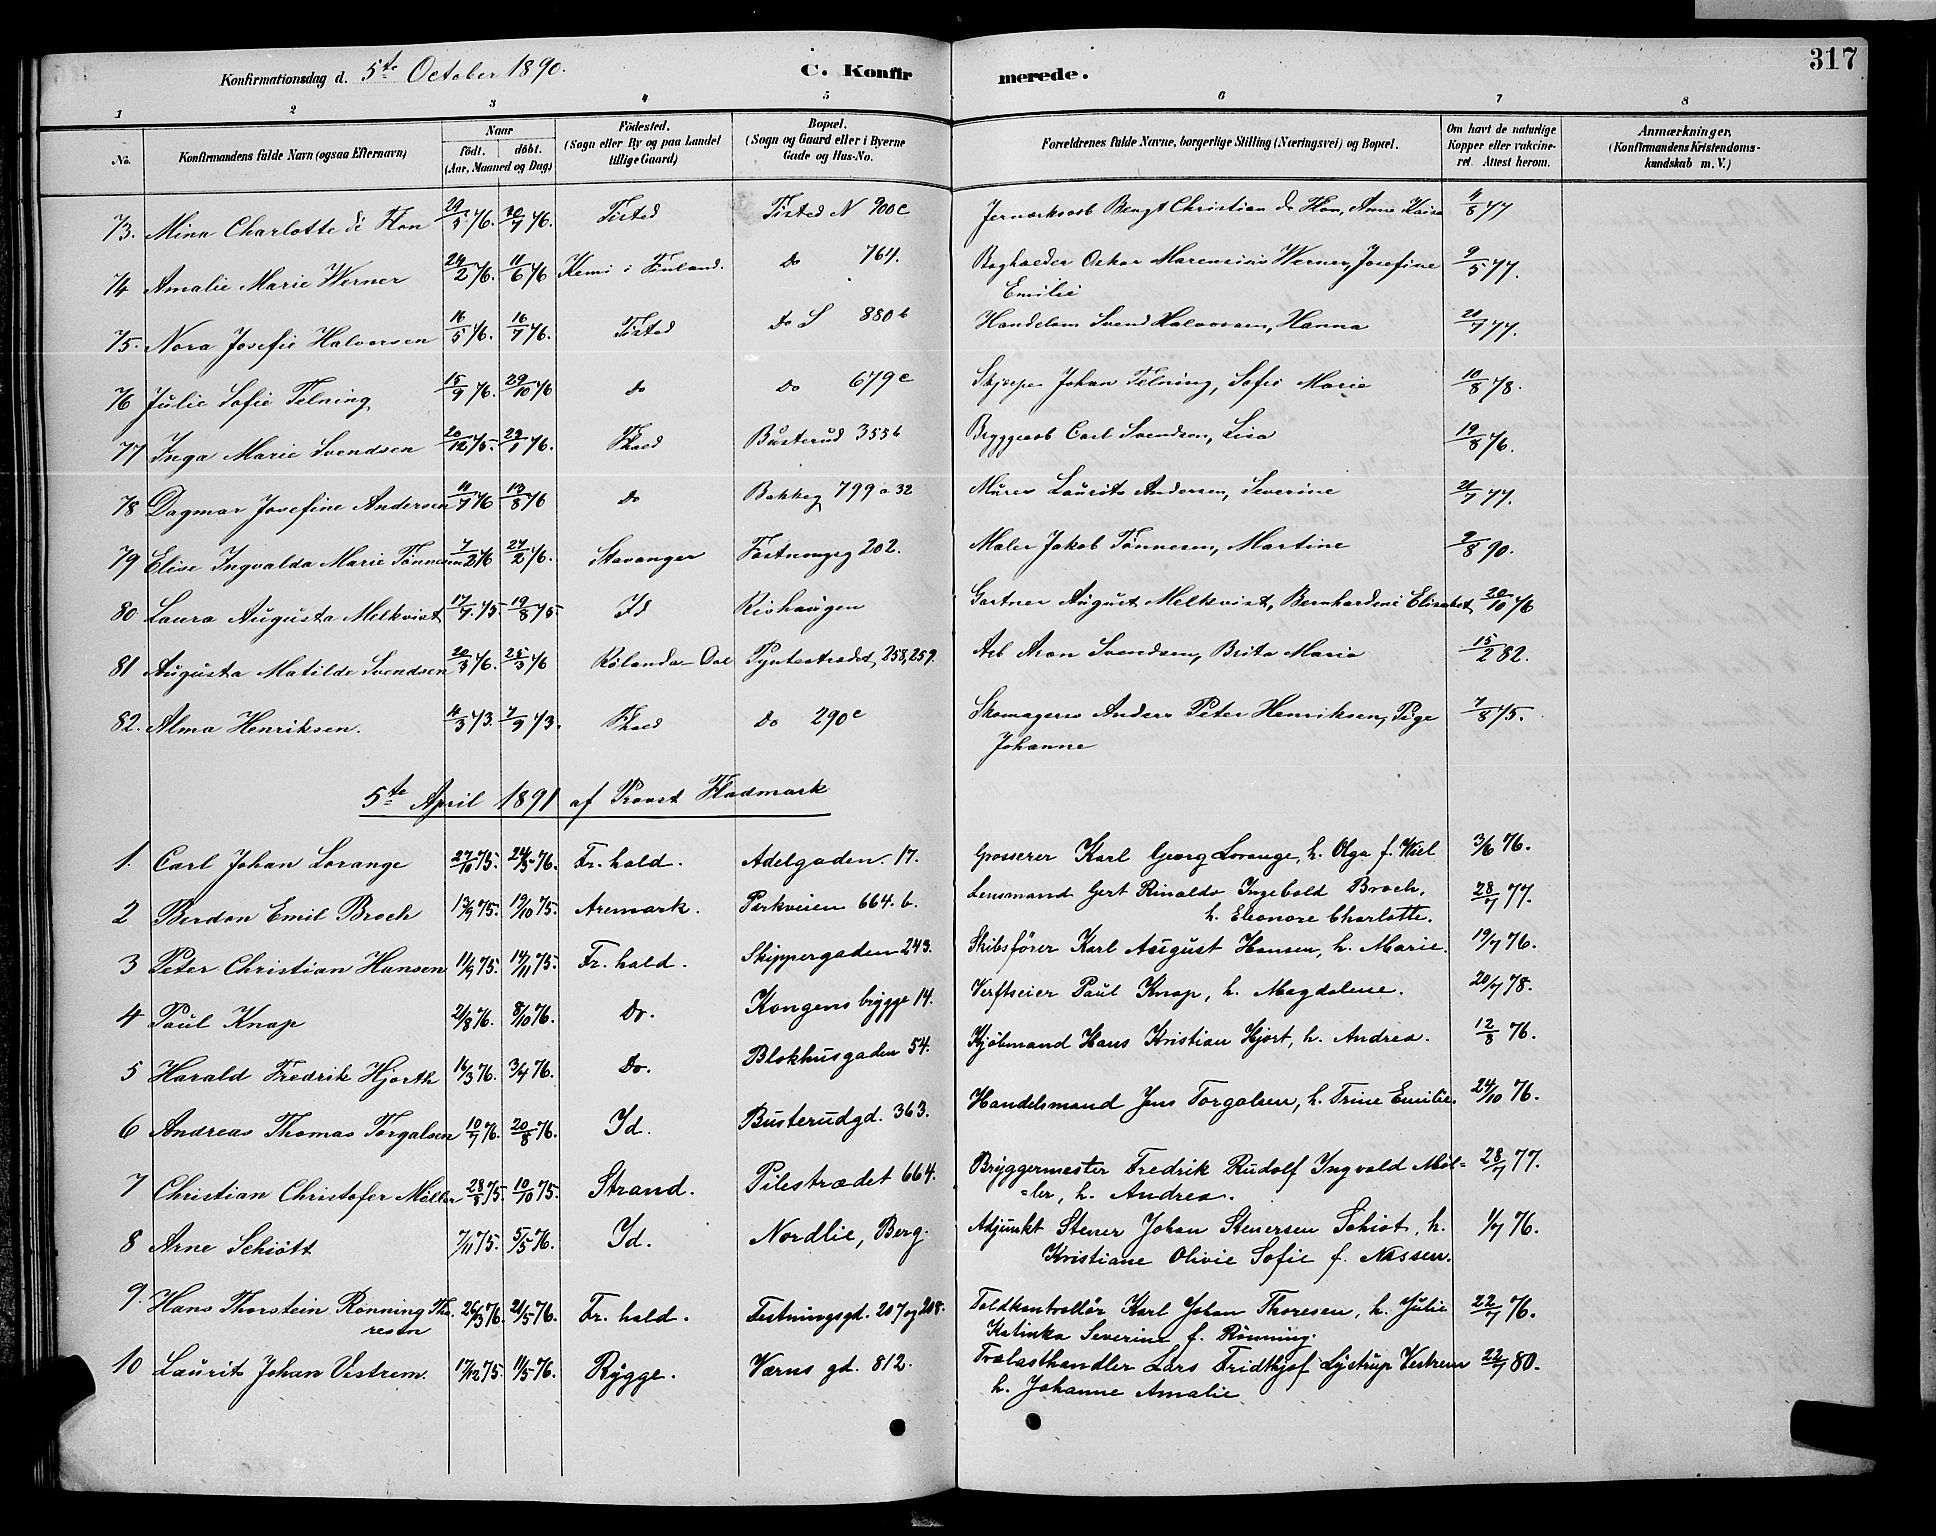 317
Konfirmationsdag d. 5te October 1890. C. Konfir merede.
1 2 3 4 5 6 7 8
No. Konfirmandens fulde Navn (ogsaa Efternavn) Naar födt. döbt. (Aar, Maaned og Dag) Födested. (Sogn eller By og paa Landet tillige Gaard) Bopæl. (Sogn og Gaard eller i Byerne Gade og Hus-No. Forældrenes fulde Navne, borgerlige Stilling (Næringsvei) og Bopæl. Om havt de naturlige Kopper eller vakcineret. Attest herom. Anmærkninger. (Konfirmandens Kristendomskundskab m. V.)
73. Mina Charlotte de Flon 29/5 76. 30/7 76. Tisted Tisted N 900c Bengt Christian de Flon, Anna Kaisa 11/8 77
74 Amalie Marie Werner 29/2 76. 11/6 76 Kemi i Finland. Do 764. Bogholder Oskar Werner, Josefine 9/5 77.
Emilie
75. Nora Josefie Halvorsen 16/5 76. 16/7 76. Tisted Do S 880b Handelsm Svend Halvorsen, Hanna 20/7 77.
76 Julie Sofie Telning 15/9 76. 29/10 76 Do Do 679c Johan Telning, Sofie Marie 10/8 78.
77 Inga Marie Svendsen 20/12 75. 23/1 76. Fhald Busterud 355b Bryggearb Carl Svendsen, Lisa 19/8 76.
78 Dagmar Josefine Andersen 11/7 76 13/8 76 Do Bakkeg 799a 32 Murer Laurits Andersen, Severine 21/7 77.
79 Elise Ingvalda Marie Tönnesen 7/2 76 27/2 76. Stavanger Fæstningsg 202. Maler Jakob Tönnesen, Martine 9/8 90.
80 Laura Augusta Melkvist 17/7. 75 19/8 75 Id Rishaugen Gartner August Melkvist, Bernhardine Elisabet 20/10 76
81 Augusta Matilde Svendsen 20/3 76. 25/3 76 Rölanda-Dal Pyntestrædet, 258, 259. Arb Aron Svendsen, Brita Maria 15/2 82.
82. Alma Henriksen. 10/3 73. 7/9 73. Fhald Do 290c Skomagersv Anders Peter Henriksen, Pige 7/8 75.
Johanne
5te April 1891 af Provst Fladmark
1. Carl Johan Lorange 27/10 75. 24/3 76. Fr.hald. Adelgaden. 17. Grosserer Karl Georg Lorange, h. Olga f. Wiel 3/6 76.
2 Berdon Emil Broch 13/9 75. 19/10 75. Aremark. Parkveien 664.b. Lensmand Gert Rinaldo Ingebold Broch, 28/7 77.
h. Eleonore Charlotte.
3 Peter Christian Hansen 11/9 75. 14/11 75. Fr.hald. Skippergaden 243. Skibsförer Karl August Hansen, h. Marie. 19/7 76.
4 Paul Knap 2/8 76. 8/10 76. Do. Kongens brygge 14. Verftseier Paul Knap, h. Magdalene. 20/7 78.
5 Harald Fredrik Hjorth 16/3 76. 3/7 76. Do. Blokhusgaden 54. Kjöbmand Hans Kristian Hjort, h. Andrea. 12/8 76.
6 Andreas Thomas Torgalsen 10/7 76. 20/8 76. Id. Busterudgd. 363. Handelsmand Jens Torgalsen, h. Trine Emilie. 24/10 76.
7 Christian Christofer Möller 28/8 75. 10/10 75. Strand. Pilestrædet 664. Bryggermester Fredrik Rudolf Ingvald Möl= 28/7 77.
=ler, h. Andrea.
8 Arne Schiött 7/11 75. 5/5 76. Id. Nordlie, Berg. Adjunkt Stener Johan Stenersen Schiöt, h. 1/7 76.
Kristiane Olivie Sofie f. Nissen.
9. Hans Thorstein Rönning Tho- 26/3 76. 21/5 76. Fr.hald. Festningsgd. 207 og 208. Toldkontrollör Karl Johan Thoresen, h. Julie 22/7 76.
resen Katinka Severine f. Rönning.
10 Laurits Johan Vestrem. 17/12 75. 11/5 76. Rygge. Værns gd. 812. Trælasthandler Lars Fridthjof Lystrup Vestrem 22/7 80.
h. Johanne Amalie